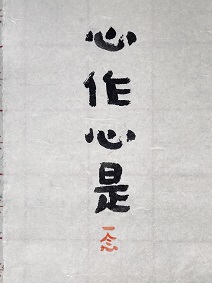 心作心是
一念